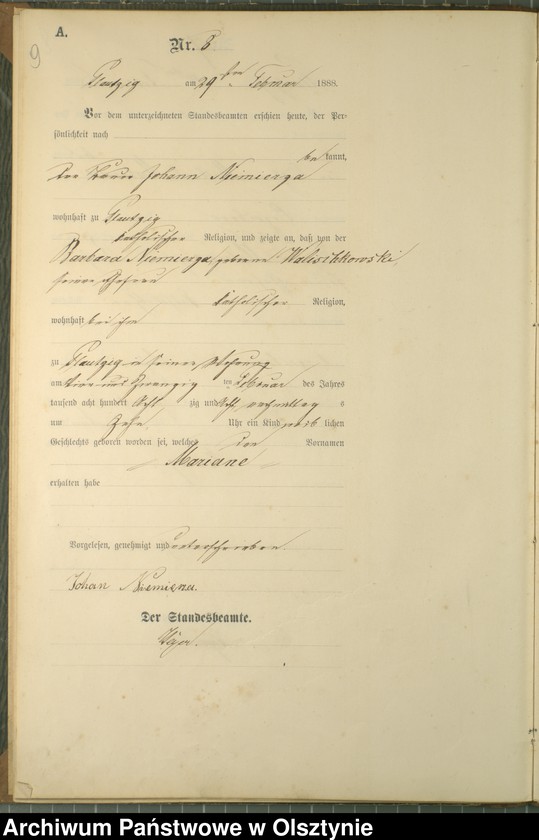 A.
9
Nr. 8
Plautzig am 29ten Februar 1888.
Vor dem unterzeichneten Standesbeamten erschien heute, der Per-
sönlichkeit nach
bekannt,
der Johann Niemierza
wohnhaft zu Plautzig
katholischer Religion, und zeigte an, daß von der
Barbara Niemierza, geborene
seiner Ehefrau
katholischer Religion,
wohnhaft bei ihm
zu Plautzig in seiner Wohnung
am und zwanzig ten Februar des Jahres
tausend acht hundert acht zig und acht, vormittag s
um Zehn Uhr ein Kind weib lichen
Geschlechts geboren worden sei, welches den Vornamen
Mariane
erhalten habe
Vorgelesen, genehmigt und unterschrieben
Johan
Der Standesbeamte.
Archiwum Państwowe w Olsztynie